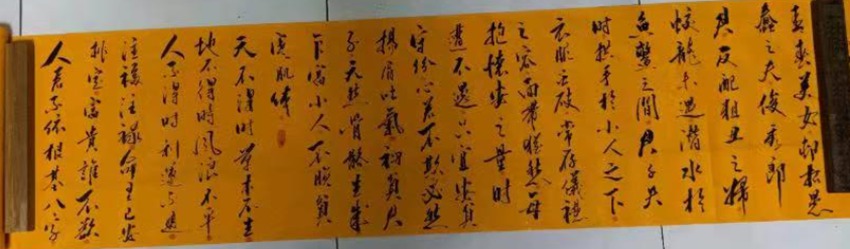 青春美女却招愚
蠢之夫俊秀郎
君反配粗丑之妇
蛟龙未遇潜水於
鱼鳖之间君子失
时拱手於小人之下
衣服虽破常存仪礼
之容面带忧愁每
抱怀安之量时
遭不遇只宜安贫
守份心若不欺必然
扬眉吐气初贫君
子天然骨骼生成
乍富小人不脱贫
寒肌体
天不得时草木不生
地不得时风浪不平
人不得时利运不通
注福注禄命里已安
排定富贵谁不欲
人若不依根基八字